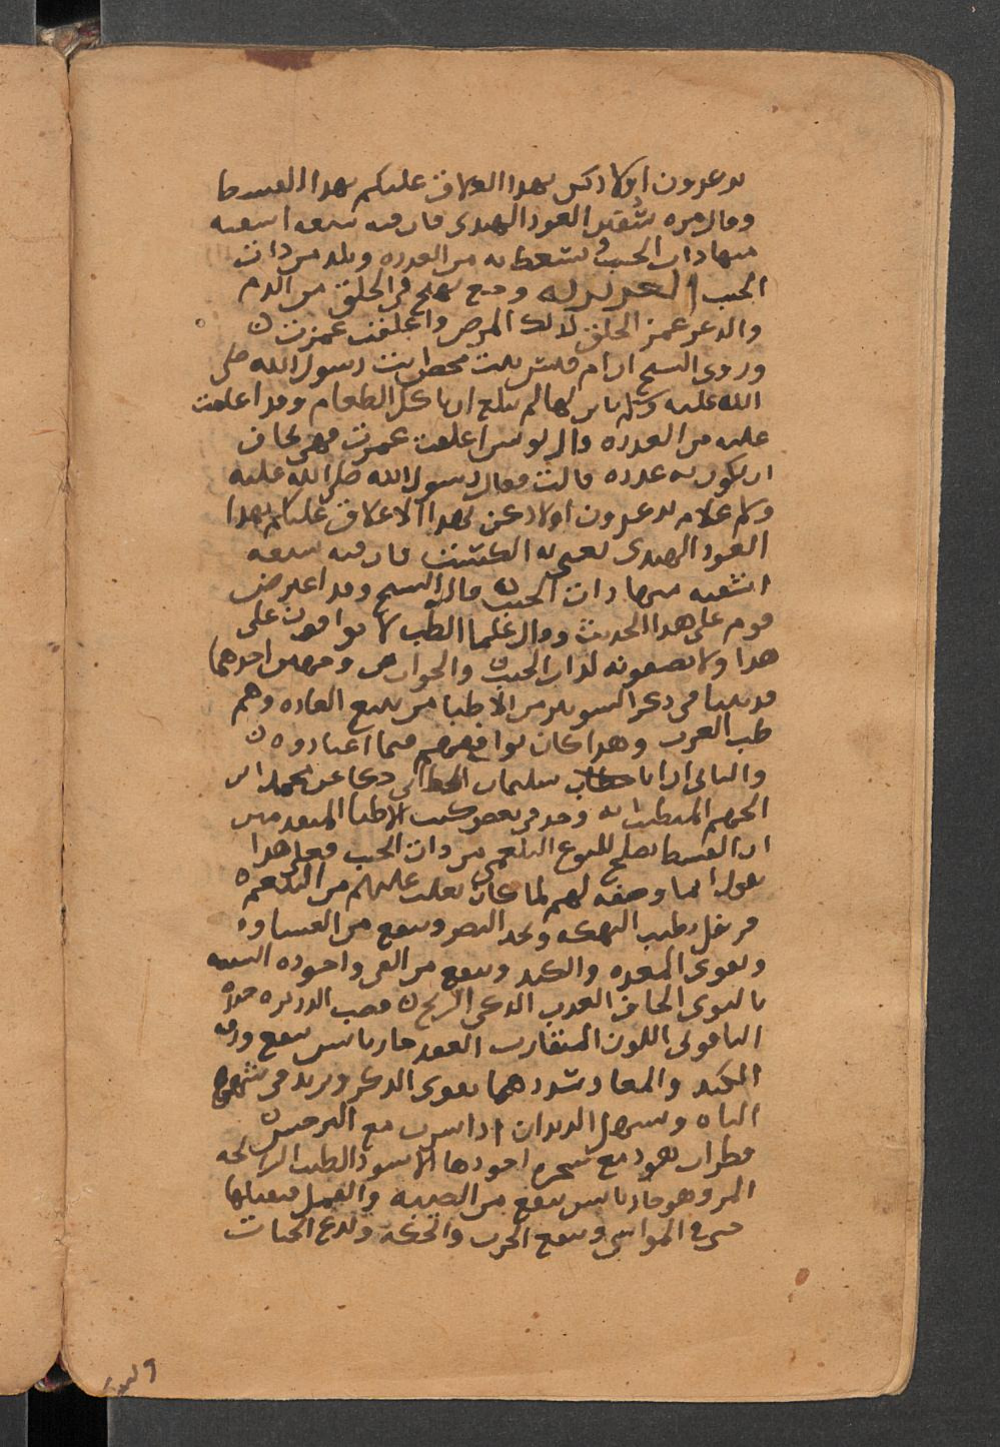 تدغرون اولادكن بهدا العلاق عليكم بهدا القسط
وقال مره يعني العود الهندى فان فيه سبعه اشفيه
منها دات الجنب ويستعط به من العدره ويلد من دات
الجنب العدره وجع يهيج فى الحلق من الدم
والدغر غمز الحلق لدلك المرض واعلقت غمزت
وروى الشيخ ان ام قيس بنت محصن اتت رسول الله صلى
الله عليه وسلم بابن لها لم يبلغ ان ياكل الطعام وقد اعلقت
عليه من العدره قال يونس اعلقت غمزت فهى تخاف
ان يكون به عدره قالت فقال رسول الله صلى الله عليه
وسلم علام تدغرون اولادكن بهدا الاعلاق عليكم بهدا
العود الهندى يعنى به الكست فان فيه سبعه
اشفيه منها دات الجنب قال الشيخ وقد اعترض
قوم على هدا الحديث وقال علما الطب لا يوافقون على
هدا ولا يصفونه لدات الجنب والجواب من وجهين احدهما
قد بينا فى دكر الشونيز من الاطبا من يتبع العاده وهم
طب العرب وهدا كان يوافقهم فيما اعتادوه
والثانى ان ابا سليمان الخطابى حكا عن محمد ابن
الجهم المتطبب انه وجد فى بعض كتب الاطبا المتقدمين
ان القسط يصلح للنوع البلغمى من دات الجنب فعلى هدا
نقول انما وصفه لهم لما كان يغلب عليهم من البلغم
قرنفل يطيب النكهه ويحد البصر وينفع من الغشاوه
ويقوى المعده والكبد وينفع من القى واجوده الشبيه
بالنوى الجاف العدب الدكى الريح قصب الدريره جيده
الياقوتى اللون المتقارب العقد حار يابس ينفع ورم
الكبد والمعا وشددهما يقوى الدكر ويزيد فى شهوه
الباه ويسهل الديدان ادا شرب مع الترمس
قطران هو دمع شجره اجودها الاسود الطيب الرائحه
المر وهو حار يابس ينفع من الصيبه والقمل فيقتلها
حتى فى المواشى وينفع الجرب والحكه ولدغ الحيات